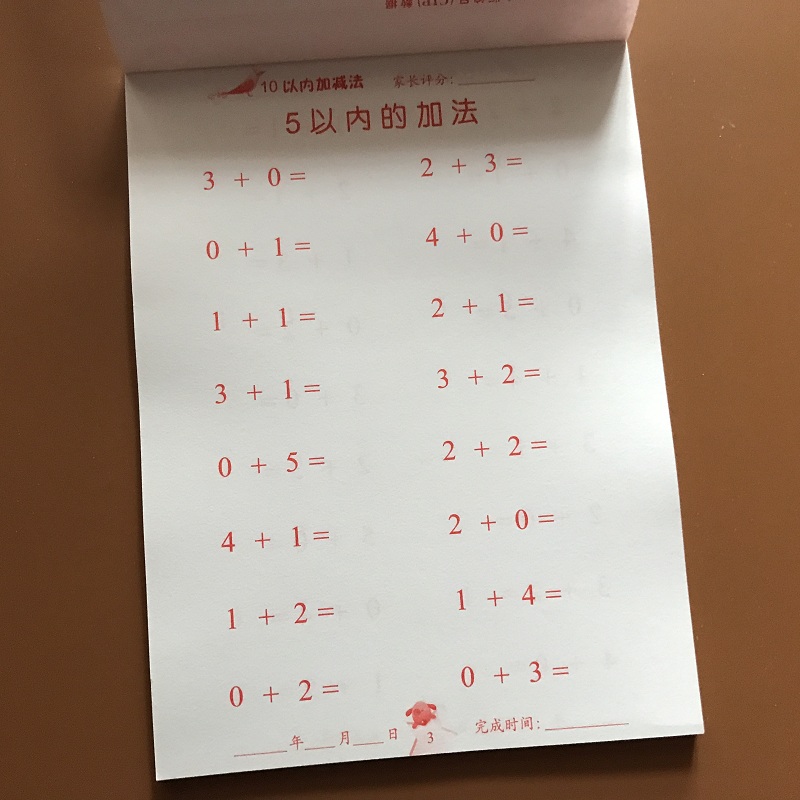 10以内加减法 家长评分:
5以内的加法
3 + 0 = 2 + 3 =
0 + 1 = 4 + 0 =
1 + 1 = 2 + 1 =
3 + 1 = 3 + 2 =
0 + 5 = 2 + 2 =
4 + 1 = 2 + 0 =
1 + 2 = 1 + 4 =
0 + 2 = 0 + 3 =
年 月 日 3 完成时间: